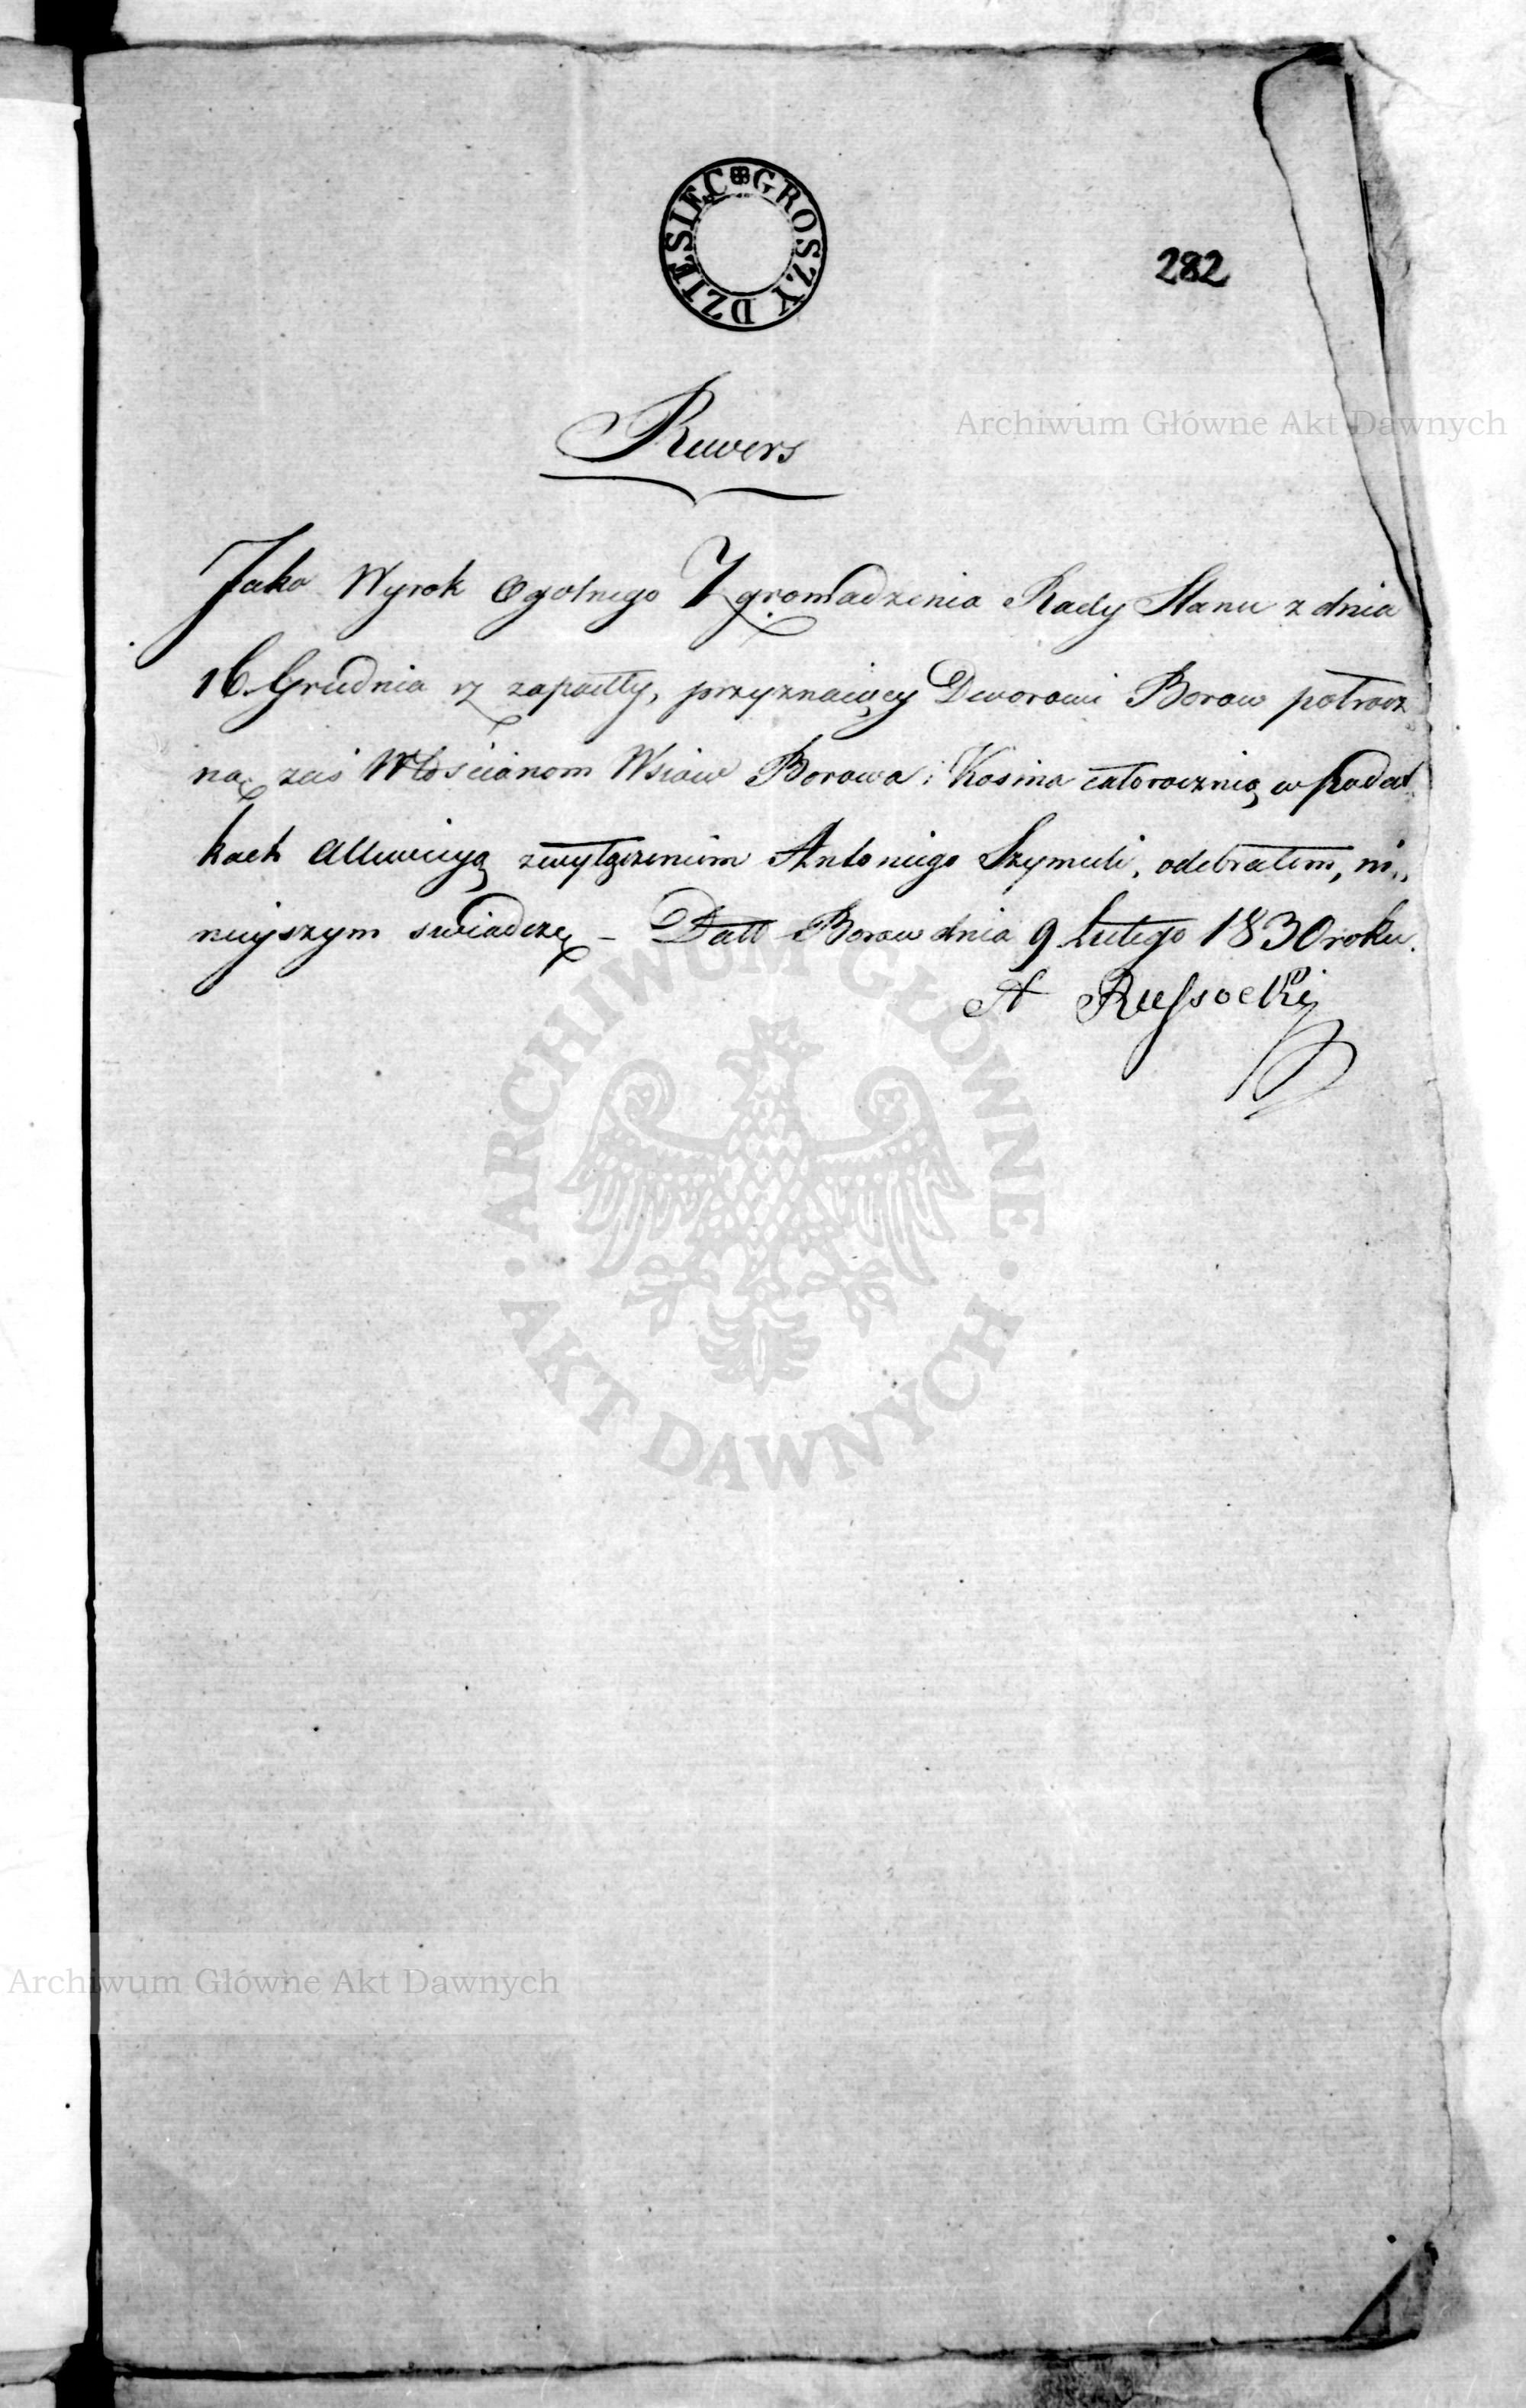 DZIESIĘĆ GROSZY
282
Archiwum Główne Akt Dawnych
Rewers
Jako Wyrok Ogolnego Zgromadzenia Rady Stanu z dnia
16. Grudnia rz zapadły, przyznaiący Dworowi Borow połrocz
ną zaś Włościanom Wsiow Borowa i Kosina całorocznią w podat
kach Allewiiyą zwyłączeniem Antoniego Szymuli, odebrałem, ni„
nieyszym swiadczę – Datt Borow dnia 9 Lutego 1830 roku.
A Russocki
ARCHIWUM GŁÓWNE
· AKT DAWNYCH ·
Archiwum Główne Akt Dawnych